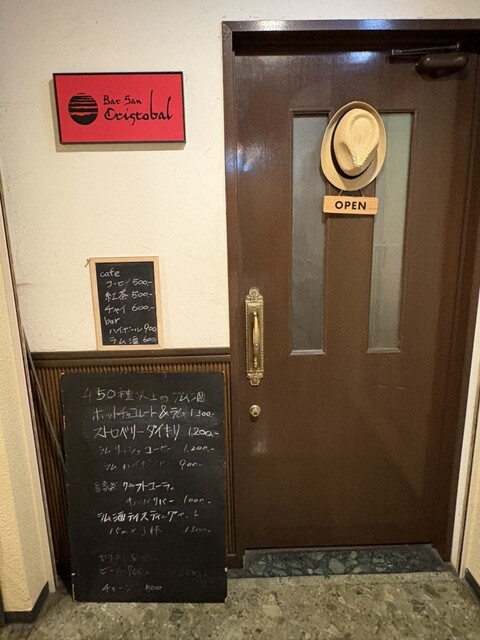 Bar San
Cristobal
OPEN
cafe
コーヒー 500,-
紅茶 500,-
チャイ 600,-
bar
ハイボール 900
ラム酒 600
450種以上のラム酒
ホットチョコレート&ラム 1,300-
ストロベリーダイキリ 1,200,-
ラムリッシュコーヒー 1,200,-
ラムハイボール 900,-
自家製 クラフトコーラ
1000,-
ラム酒テイスティングセット
15ml×3杯 1500,-
チャージ 500